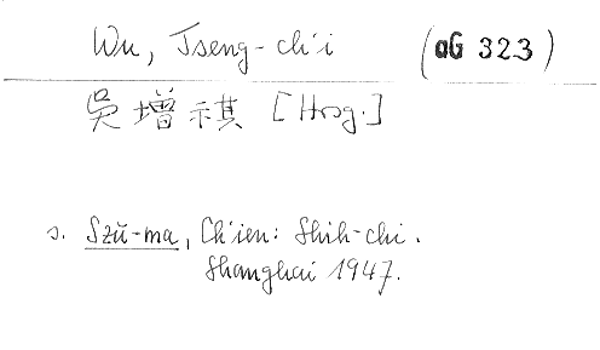 Wu, Tseng-ch'i (aG 323)
吳增祺 [Hrsg.]
s. Szŭ-ma, Ch'ien: Shih-chi.
Shanghai 1947.